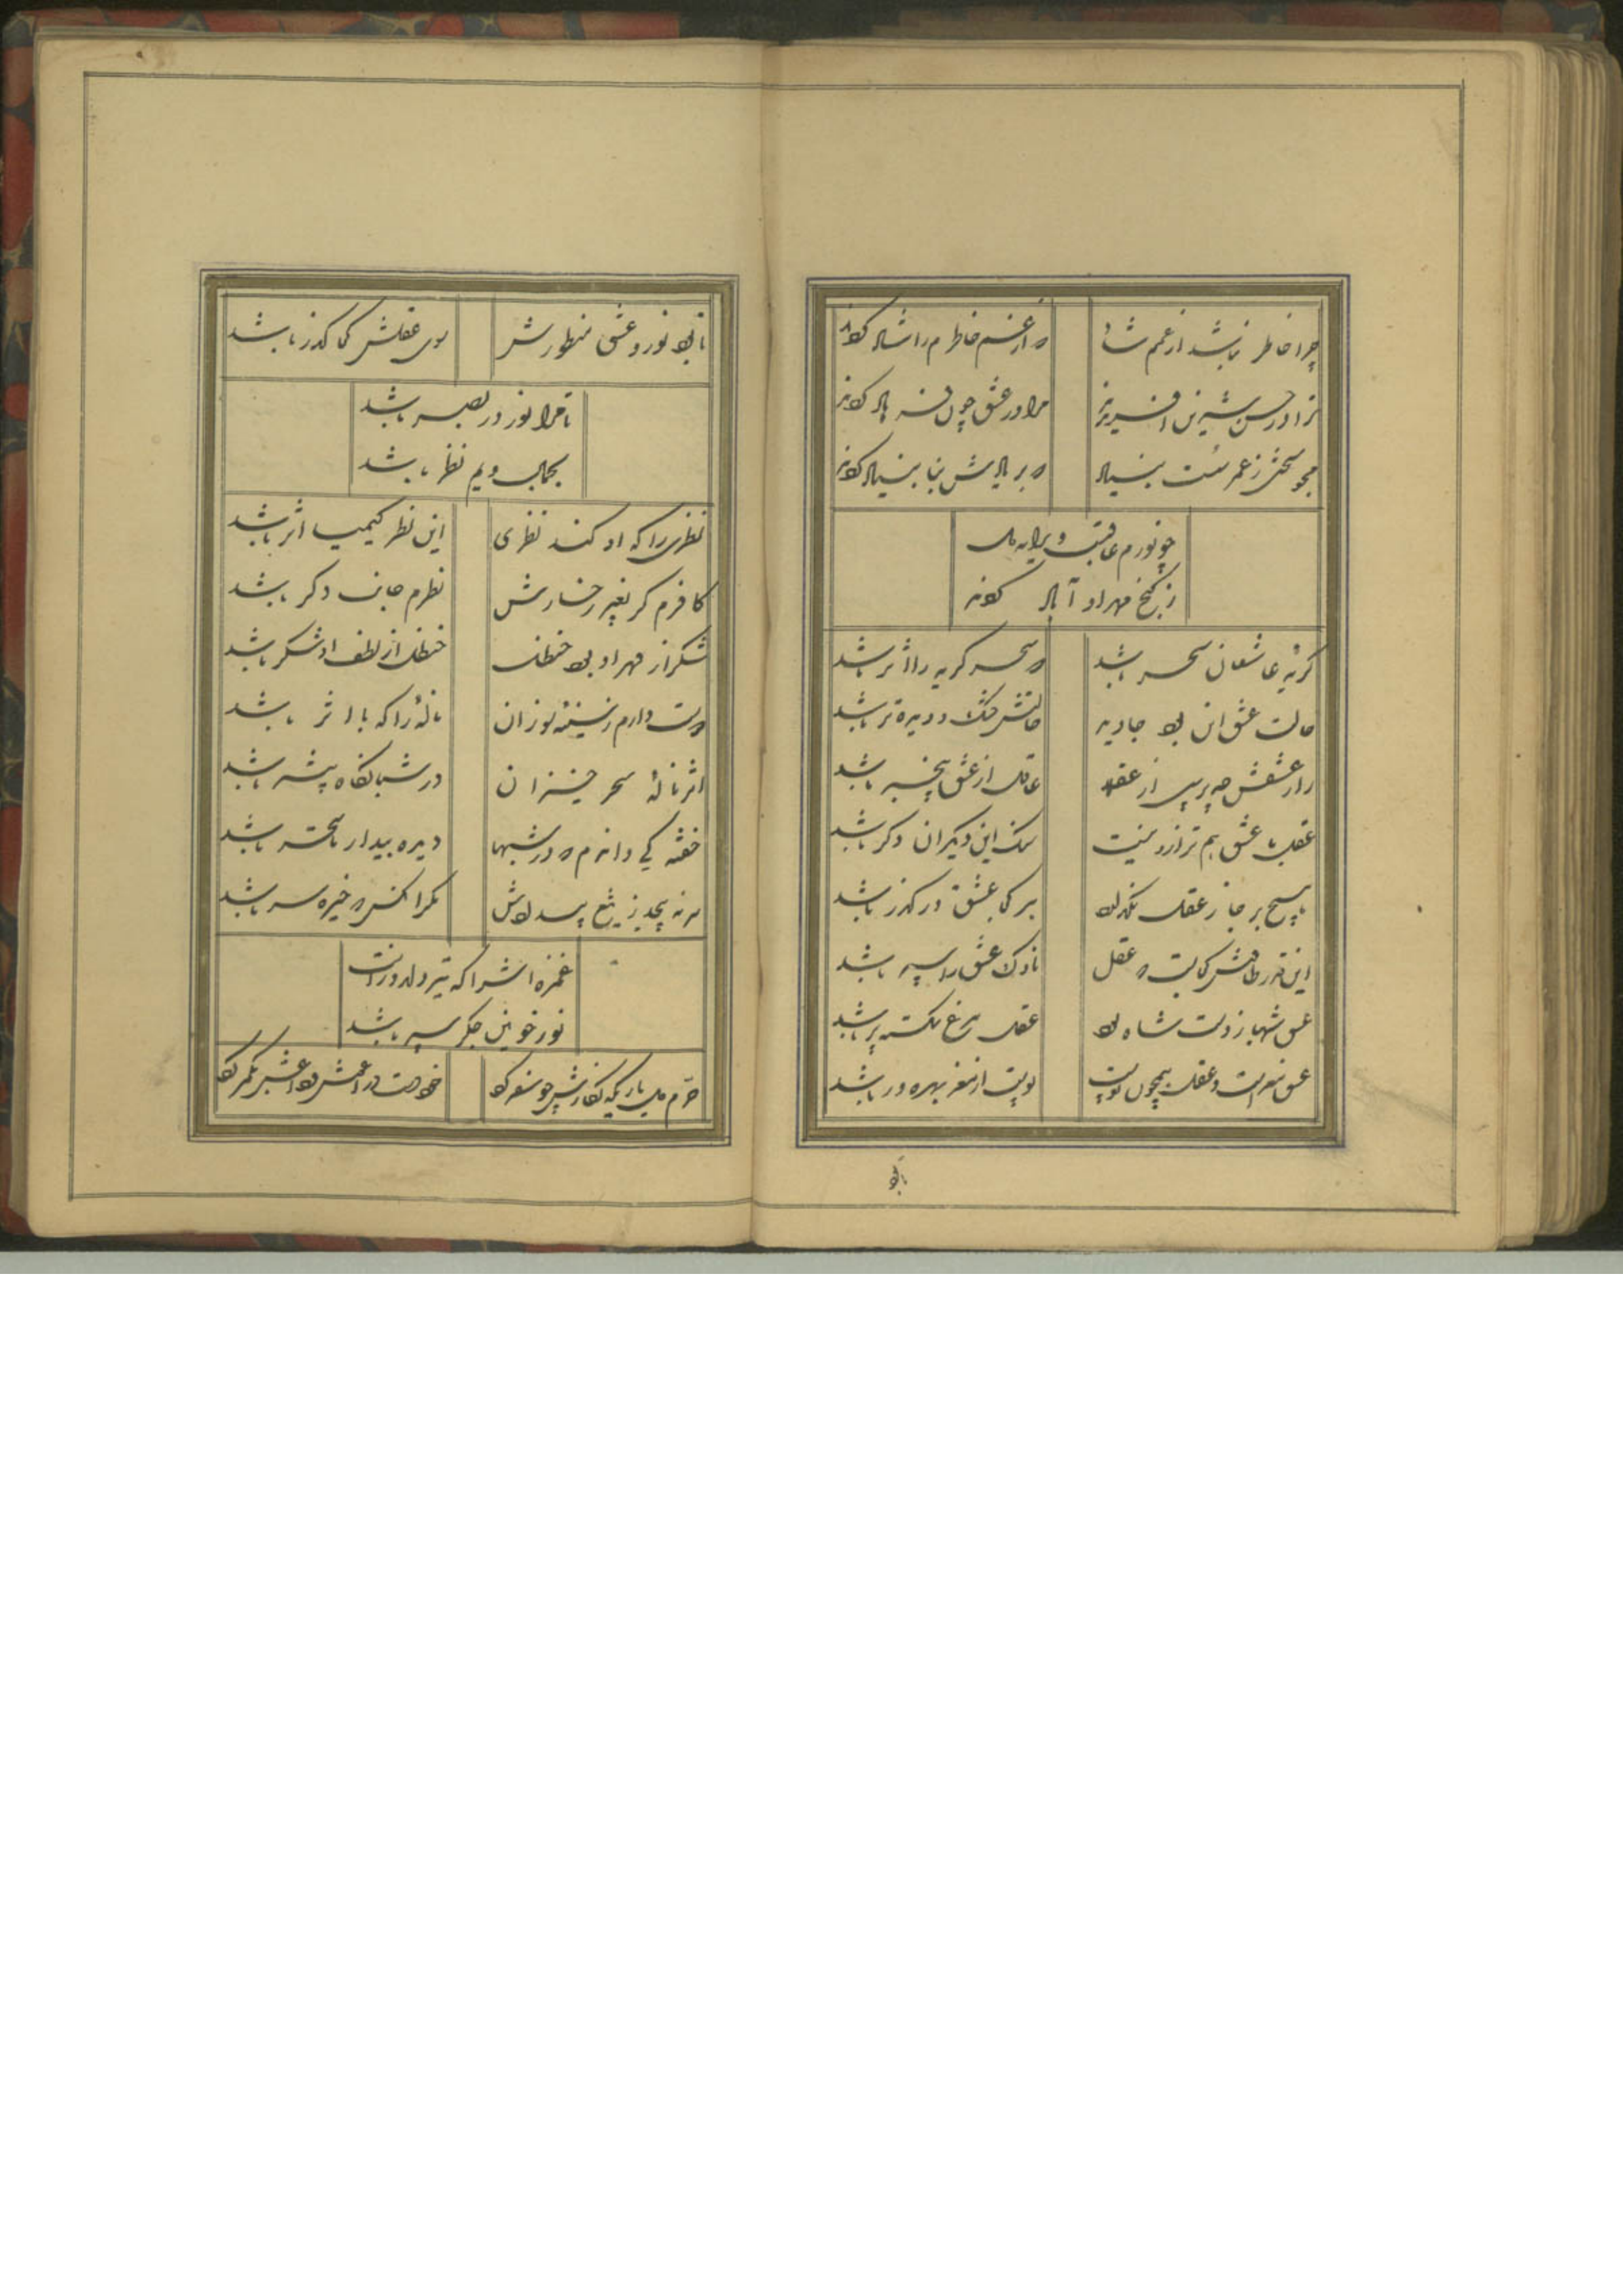 چرا خاطر نباشد از غمم شاد
که از غم خاطرم را شاد کردند
ترا در حسن شیرین آفریدند
مرا در عشق چون فرهاد کردند
مجو سختی ز عمر سست بنیاد
که بر بادش بنا بنیاد کردند
چو نورم عاقبت ویرانه دل
ز گنج مهر او آباد کردند
گریه عاشقان سحر باشد
که سحر گریه را اثر باشد
حالت عشق این بود جاوید
خشک و دیده تر باشد
راز عشقش چه پرسی از عقلم
عاقل از عشق بیخبر باشد
عقل با عشق هم ترازو نیست
سنگ این دیگران دگر باشد
پا بر جا ز عقل نگذارد
هر کجا عشق در گذر باشد
این قدر طاقتش کجاست که عقل
ناوک عشق را سپر باشد
عشق شهباز دست شاه بود
عقل مرغ شکسته پر باشد
عشق مغز است و عقل همچون پوست
پوست از مغز بهره ور باشد
تا بود
تا بود نور و عشق منظورش
سوی عقلش کجا گذر باشد
تا مرا نور در بصر باشد
بجمال ویم نظر باشد
نظری را که او کند نظری
این نظر کیمیا اثر باشد
کافرم گر بغیر رخسارش
نظرم جانب دگر باشد
شکر از مهر او بود حنظل
حنظل از لطف او شکر باشد
دوست دارم ز سینه سوزان
ناله را که با اثر باشد
اثر ناله سحر خیزان
در شبانگاه بیشتر باشد
خفته کی داند که در شبها
دیده بیدار تا سحر باشد
سر نه پیچد ز تیغ بیدادش
مگر آنکس که خیره سر باشد
غمزه اش را که تیر دلدوز است
نور خونین جگر سپر باشد
خرم دل یاری که نگارش چو تو